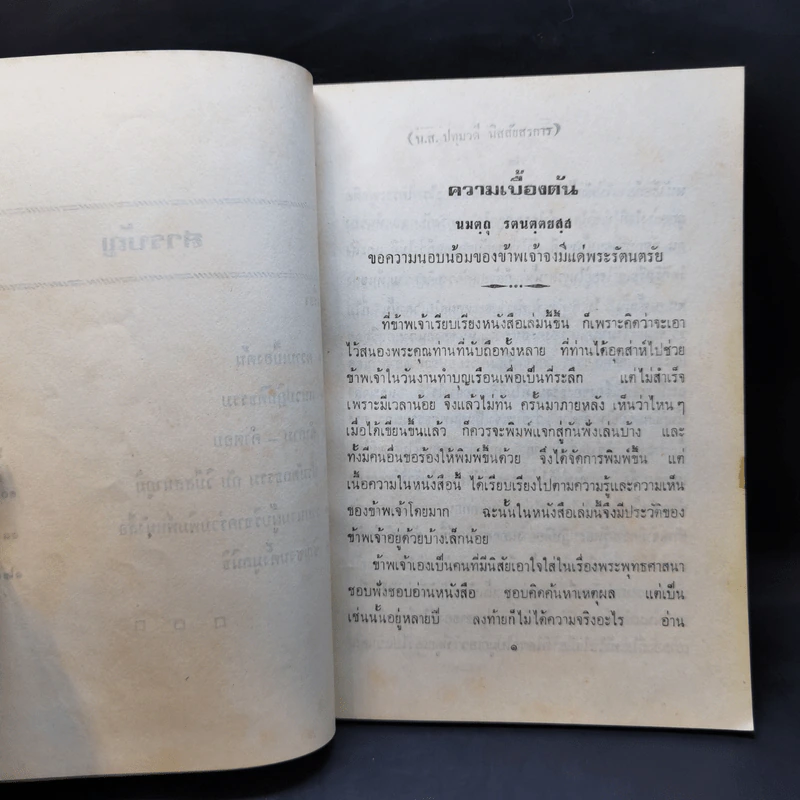 ความเบื้องต้น
นมตฺถุ รตนตฺตยสฺส
ขอความนอบน้อมของข้าพเจ้าจงมีแด่พระรัตนตรัย
ที่ข้าพเจ้าเรียบเรียงหนังสือเล่มนี้ขึ้น ก็เพราะคิดว่าจะเอา
ไว้สนองพระคุณท่านที่นับถือทั้งหลาย ที่ท่านได้อุตส่าห์ไปช่วย
ข้าพเจ้าในวันงานทำบุญเรือนเพื่อเป็นที่ระลึก แต่ไม่สำเร็จ
เพราะมีเวลาน้อย จึงแล้วไม่ทัน ครั้นมาภายหลัง เห็นว่าไหนๆ
เมื่อได้เขียนขึ้นแล้ว ก็ควรจะพิมพ์แจกสู่กันฟังเล่นบ้าง และ
ทั้งมีคนอื่นขอร้องให้พิมพ์ขึ้นด้วย จึงได้จัดการพิมพ์ขึ้น แต่
เนื้อความในหนังสือนี้ ได้เรียบเรียงไปตามความรู้และความเห็น
ของข้าพเจ้าโดยมาก ฉะนั้นในหนังสือเล่มนี้จึงมีประวัติของ
ข้าพเจ้าอยู่ด้วยบ้างเล็กน้อย
ข้าพเจ้าเองเป็นคนที่มีนิสัยเอาใจใส่ในเรื่องพระพุทธศาสนา
ชอบฟังชอบอ่านหนังสือ ชอบคิดค้นหาเหตุผล แต่เป็น
เช่นนั้นอยู่หลายปี ลงท้ายก็ไม่ได้ความจริงอะไร อ่าน
๑